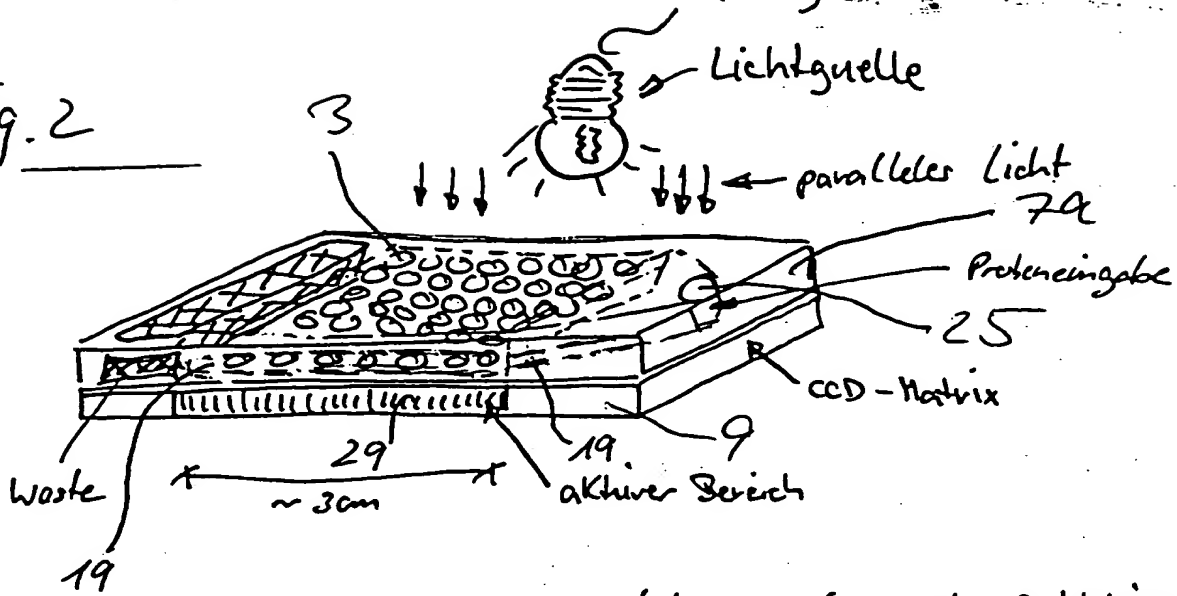 g. 2
Lichtquelle
3
paralleles Licht
7a
Proteineingabe
25
CCD-Matrix
9
19
29
aktiver Bereich
~ 3cm
waste
19